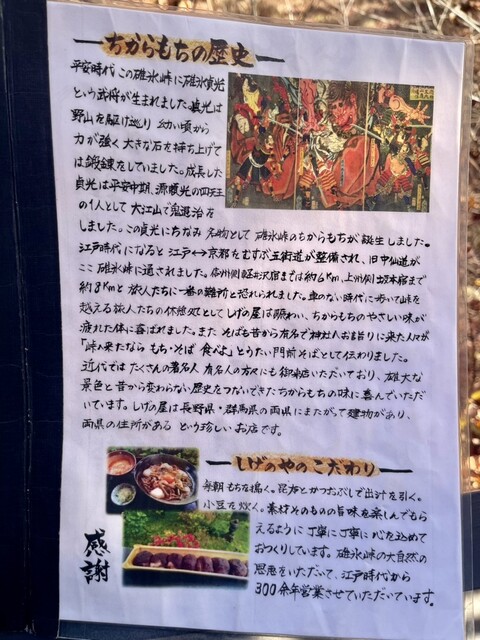 ちからもちの歴史
平安時代 この碓氷峠に碓氷貞光
という武将が生まれました。貞光は
野山を駆け巡り 幼い頃から
力が強く大きな石を持ち上げて
は鍛錬をしていました。成長した
貞光は平安中期、源頼光の四天王
の1人として 大江山で鬼退治を
しました。この貞光にちなみ 名物として 碓氷峠のちからもちが誕生しました。
江戸時代になると 江戸↔京都をむすぶ五街道が整備され、旧中仙道が
ここ 碓氷峠に通されました。信州側軽井沢宿までは約6Km、上州側坂本宿まで
約8Kmと 旅人たちに一番の難所と恐れられました。車のない時代に歩いて峠を
越える旅人たちの休憩処としてしげの屋は賑わい、ちからもちのやさしい味が
疲れた体に喜ばれました。また そばも昔から有名で神社へお詣りに来た人々が
「峠へ来たなら もち・そば 食べよ」とうたい門前そばとして伝わりました。
近代では たくさんの著名人 有名人の方々にも 御来店いただいており、雄大な
景色と 昔から変わらない歴史をつないできたちからもちの味に 喜んでいただ
いています。しげの屋は長野県・群馬県の両県にまたがって建物があり、
両県の住所がある という珍しい お店です。
しげのやのこだわり
毎朝 もちを搗く。昆布とかつおぶしで出汁を引く。
小豆を炊く。素材そのものの旨味を楽しんでもら
えるように 丁寧に丁寧に 心を込めて
おつくりしています。碓氷峠の大自然の
恩恵をいただいて、江戸時代から
300余年営業させていただいています。
感謝